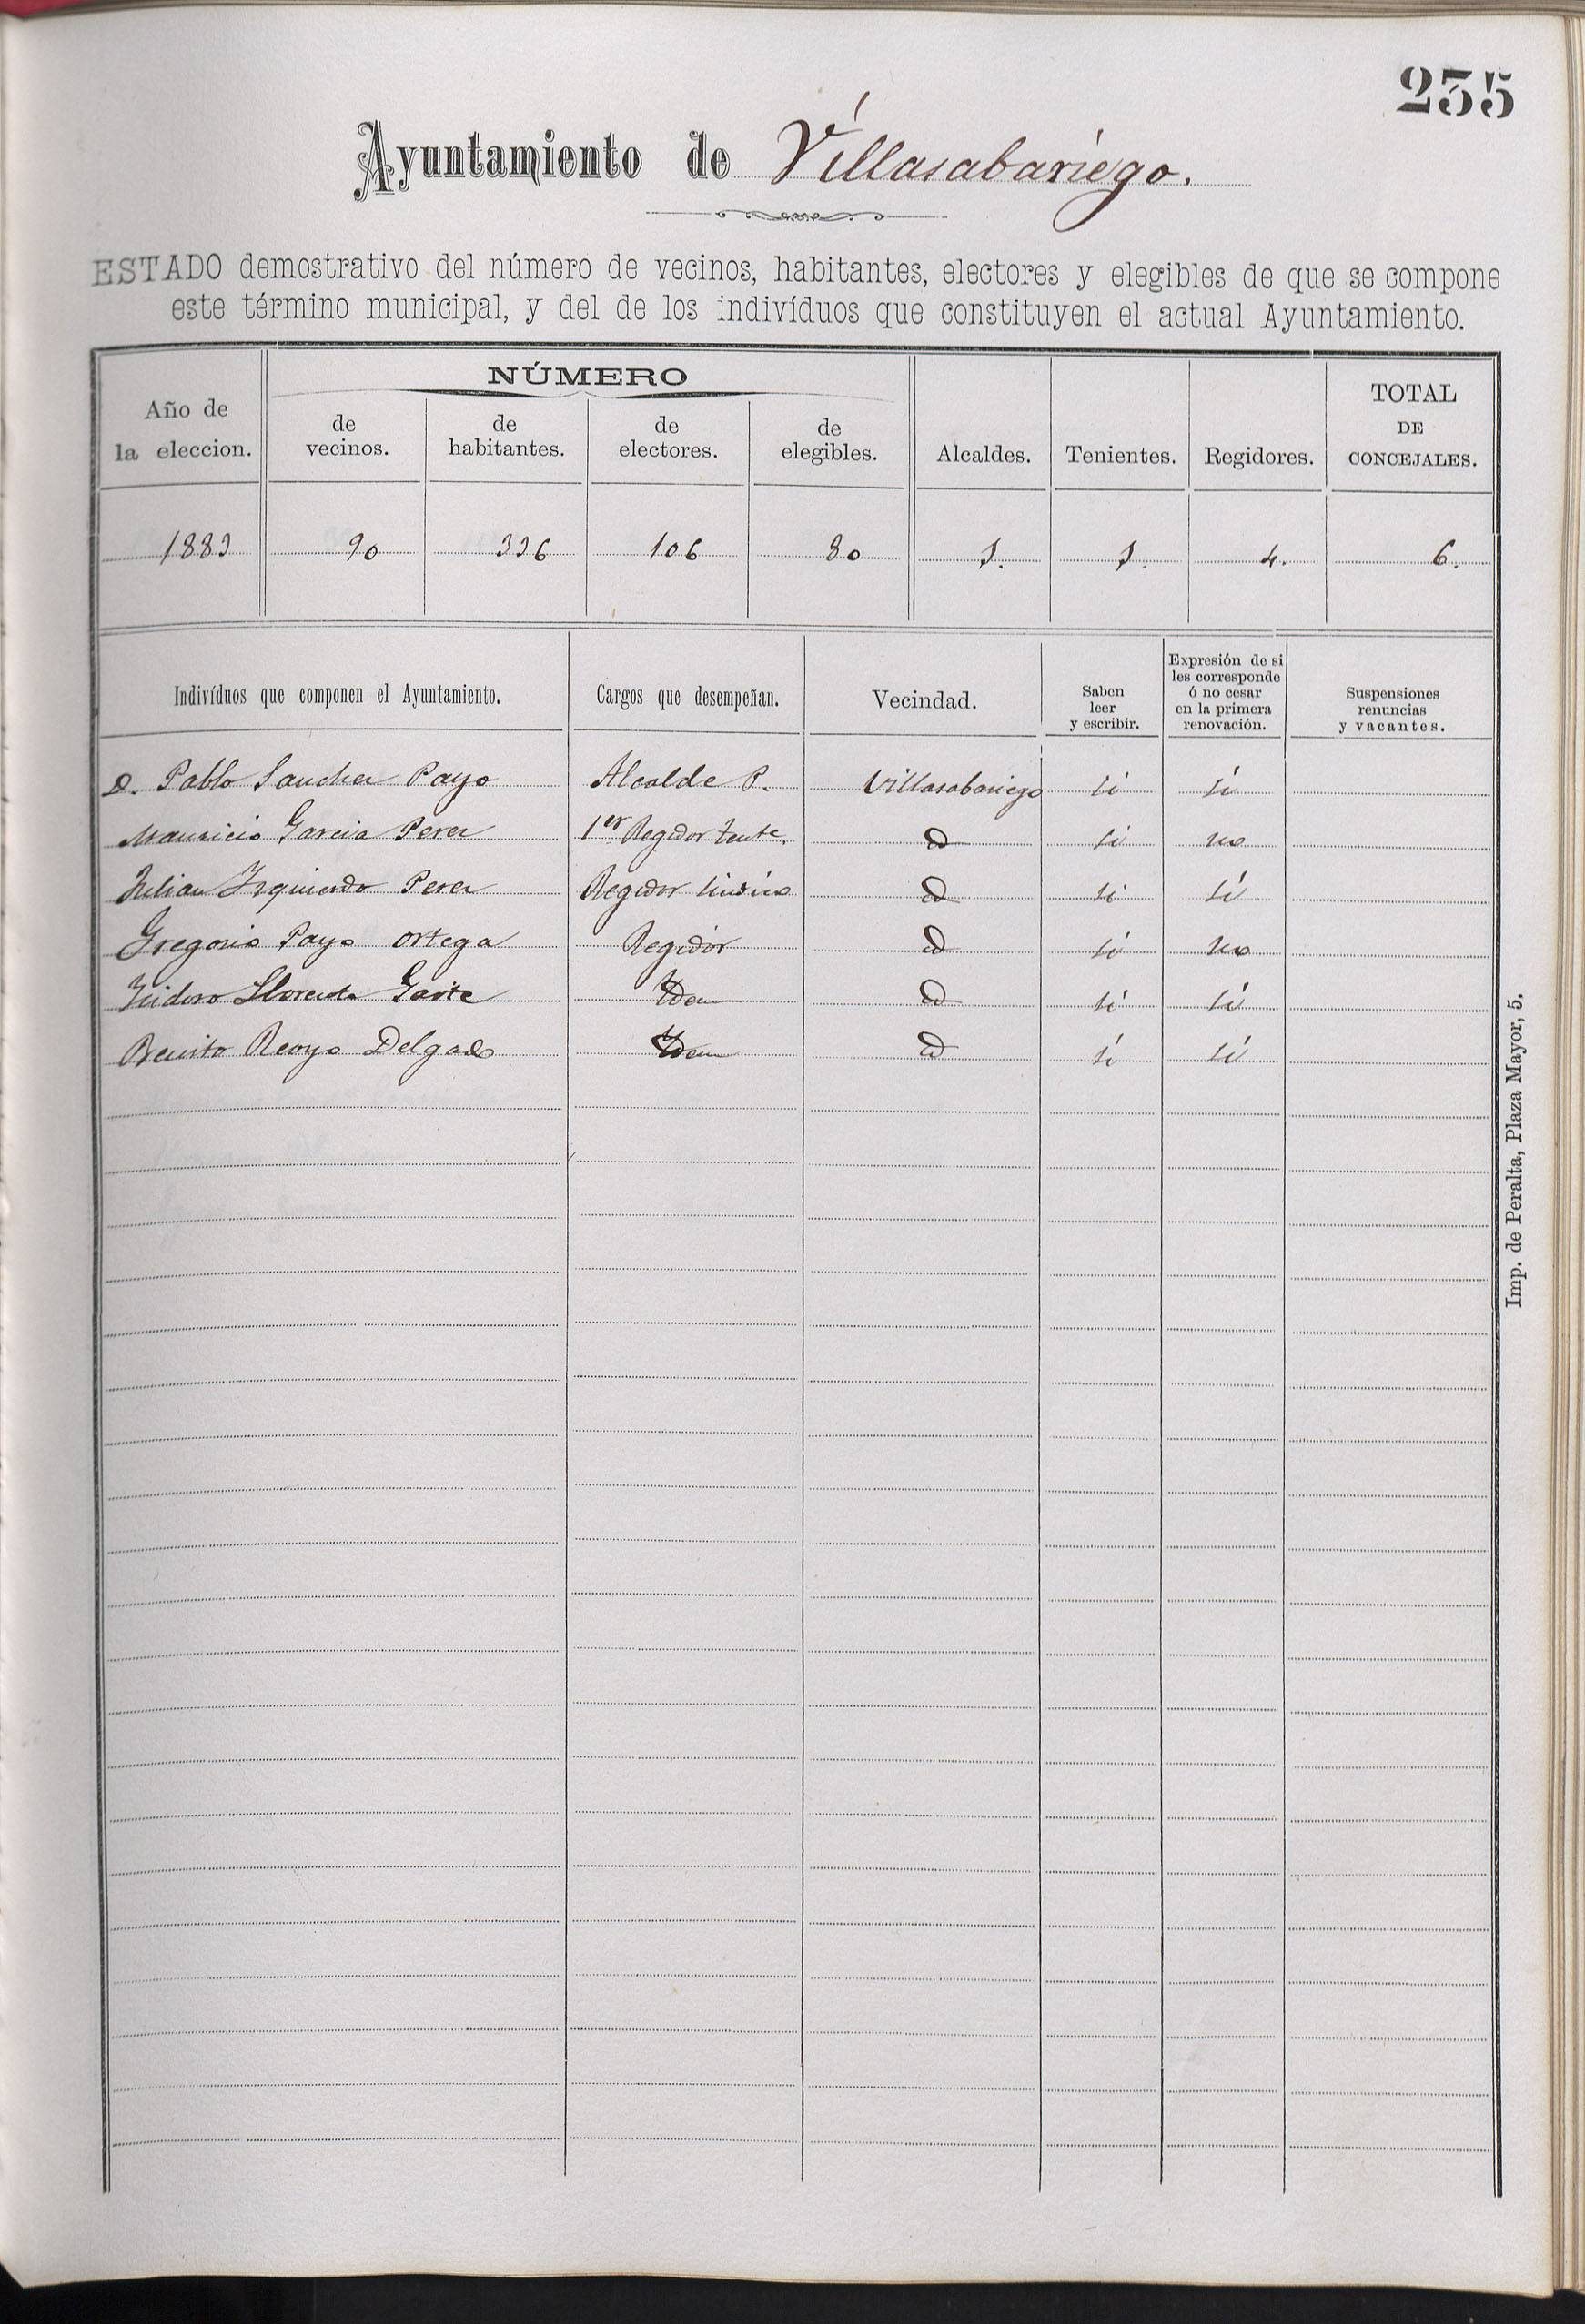 235
Ayuntamiento de Villasabariego.
ESTADO demostrativo del número de vecinos, habitantes, electores y elegibles de que se compone
este término municipal, y del de los indivíduos que constituyen el actual Ayuntamiento.
Año de la eleccion.
NÚMERO
de vecinos.
de habitantes.
de electores.
de elegibles.
Alcaldes.
Tenientes.
Regidores.
TOTAL DE CONCEJALES.
1883 90 336 106 80 1. 1. 4. 6.
Indivíduos que componen el Ayuntamiento.
Cargos que desempeñan.
Vecindad.
Saben leer y escribir.
Expresión de si les corresponde ó no cesar en la primera renovación.
Suspensiones renuncias y vacantes.
D. Pablo Sanchez Payo Alcalde P. Villasabariego si sí
Mauricio Garcia Perez 1er Regidor Tente. id si no
Julian Izquierdo Perez Regidor Sindico id si sí
Gregorio Payo Ortega Regidor id sí no
Isidoro Llorente Idem id sí sí
Benito Reoyo Delgado Idem id sí sí
Imp. de Peralta, Plaza Mayor, 5.